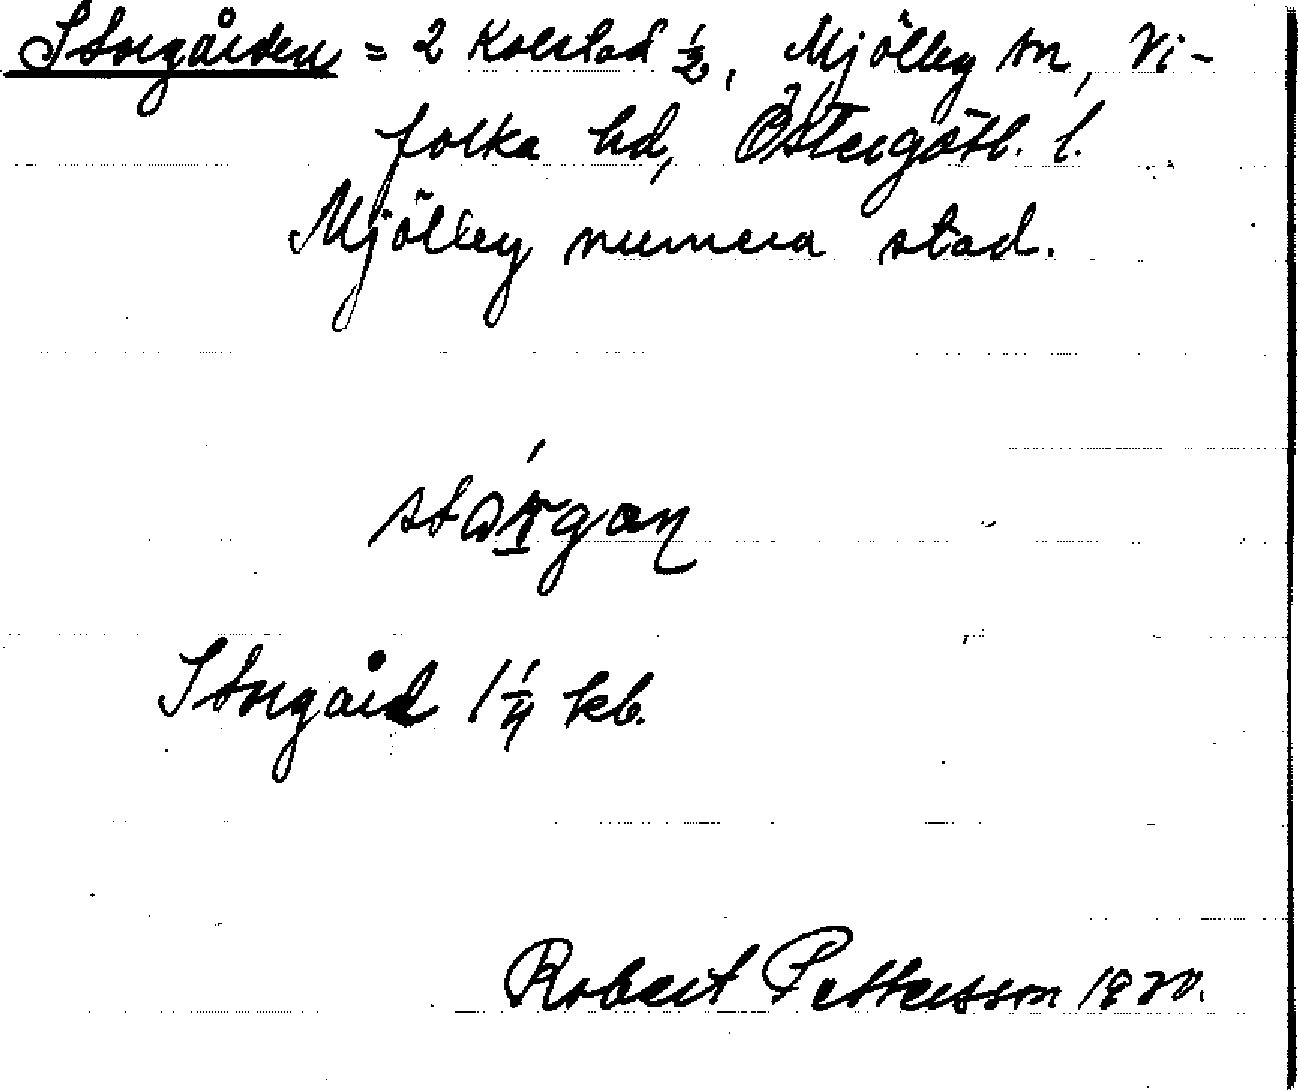 Storgården = 2 Kolstad ½, Mjölby sn, Vi-
folka hd, Östergötl. l.
Mjölby numera stad.
Storgård 1¼ kb.
Robert Pettersson 1920.